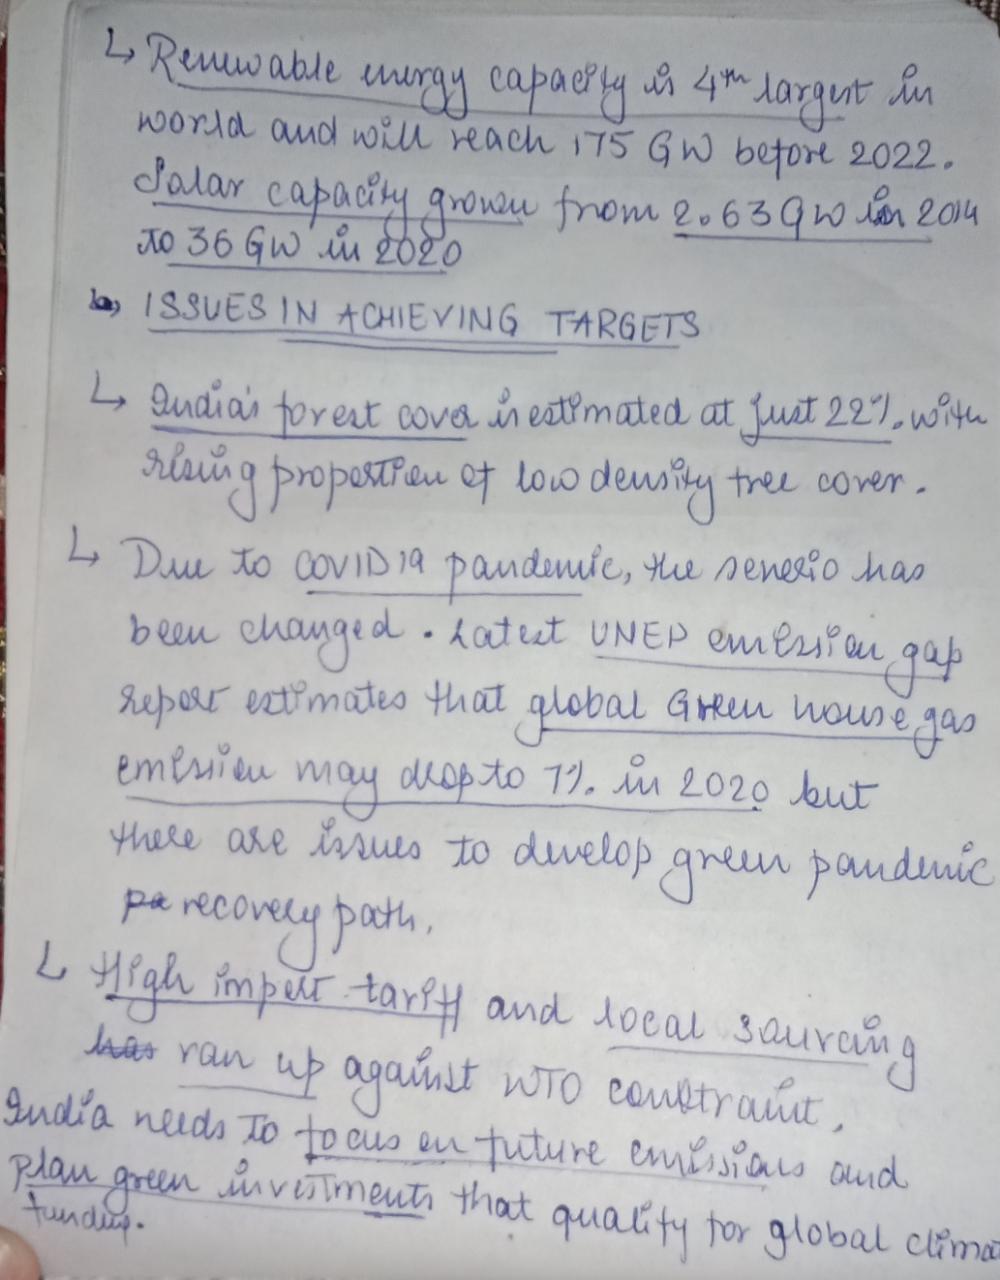 ↳ Renewable energy capacity is 4th largest in
world and will reach 175 GW before 2022.
Solar capacity grown from 2.63 GW in 2014
to 36 GW in 2020
b, ISSUES IN ACHIEVING TARGETS
↳ India's forest cover is estimated at just 22%. with
rising proportion of low density tree cover.
↳ Due to COVID 19 pandemic, the senerio has
been changed. Latest UNEP emission gap
report estimates that global Green house gas
emission may drop to 7%. in 2020 but
there are issues to develop green pandemic
recovery path.
↳ High import tariff and local sourcing
ran up against WTO constraint.
India needs to focus on future emissions and
plan green investments that qualify for global climat
funding.